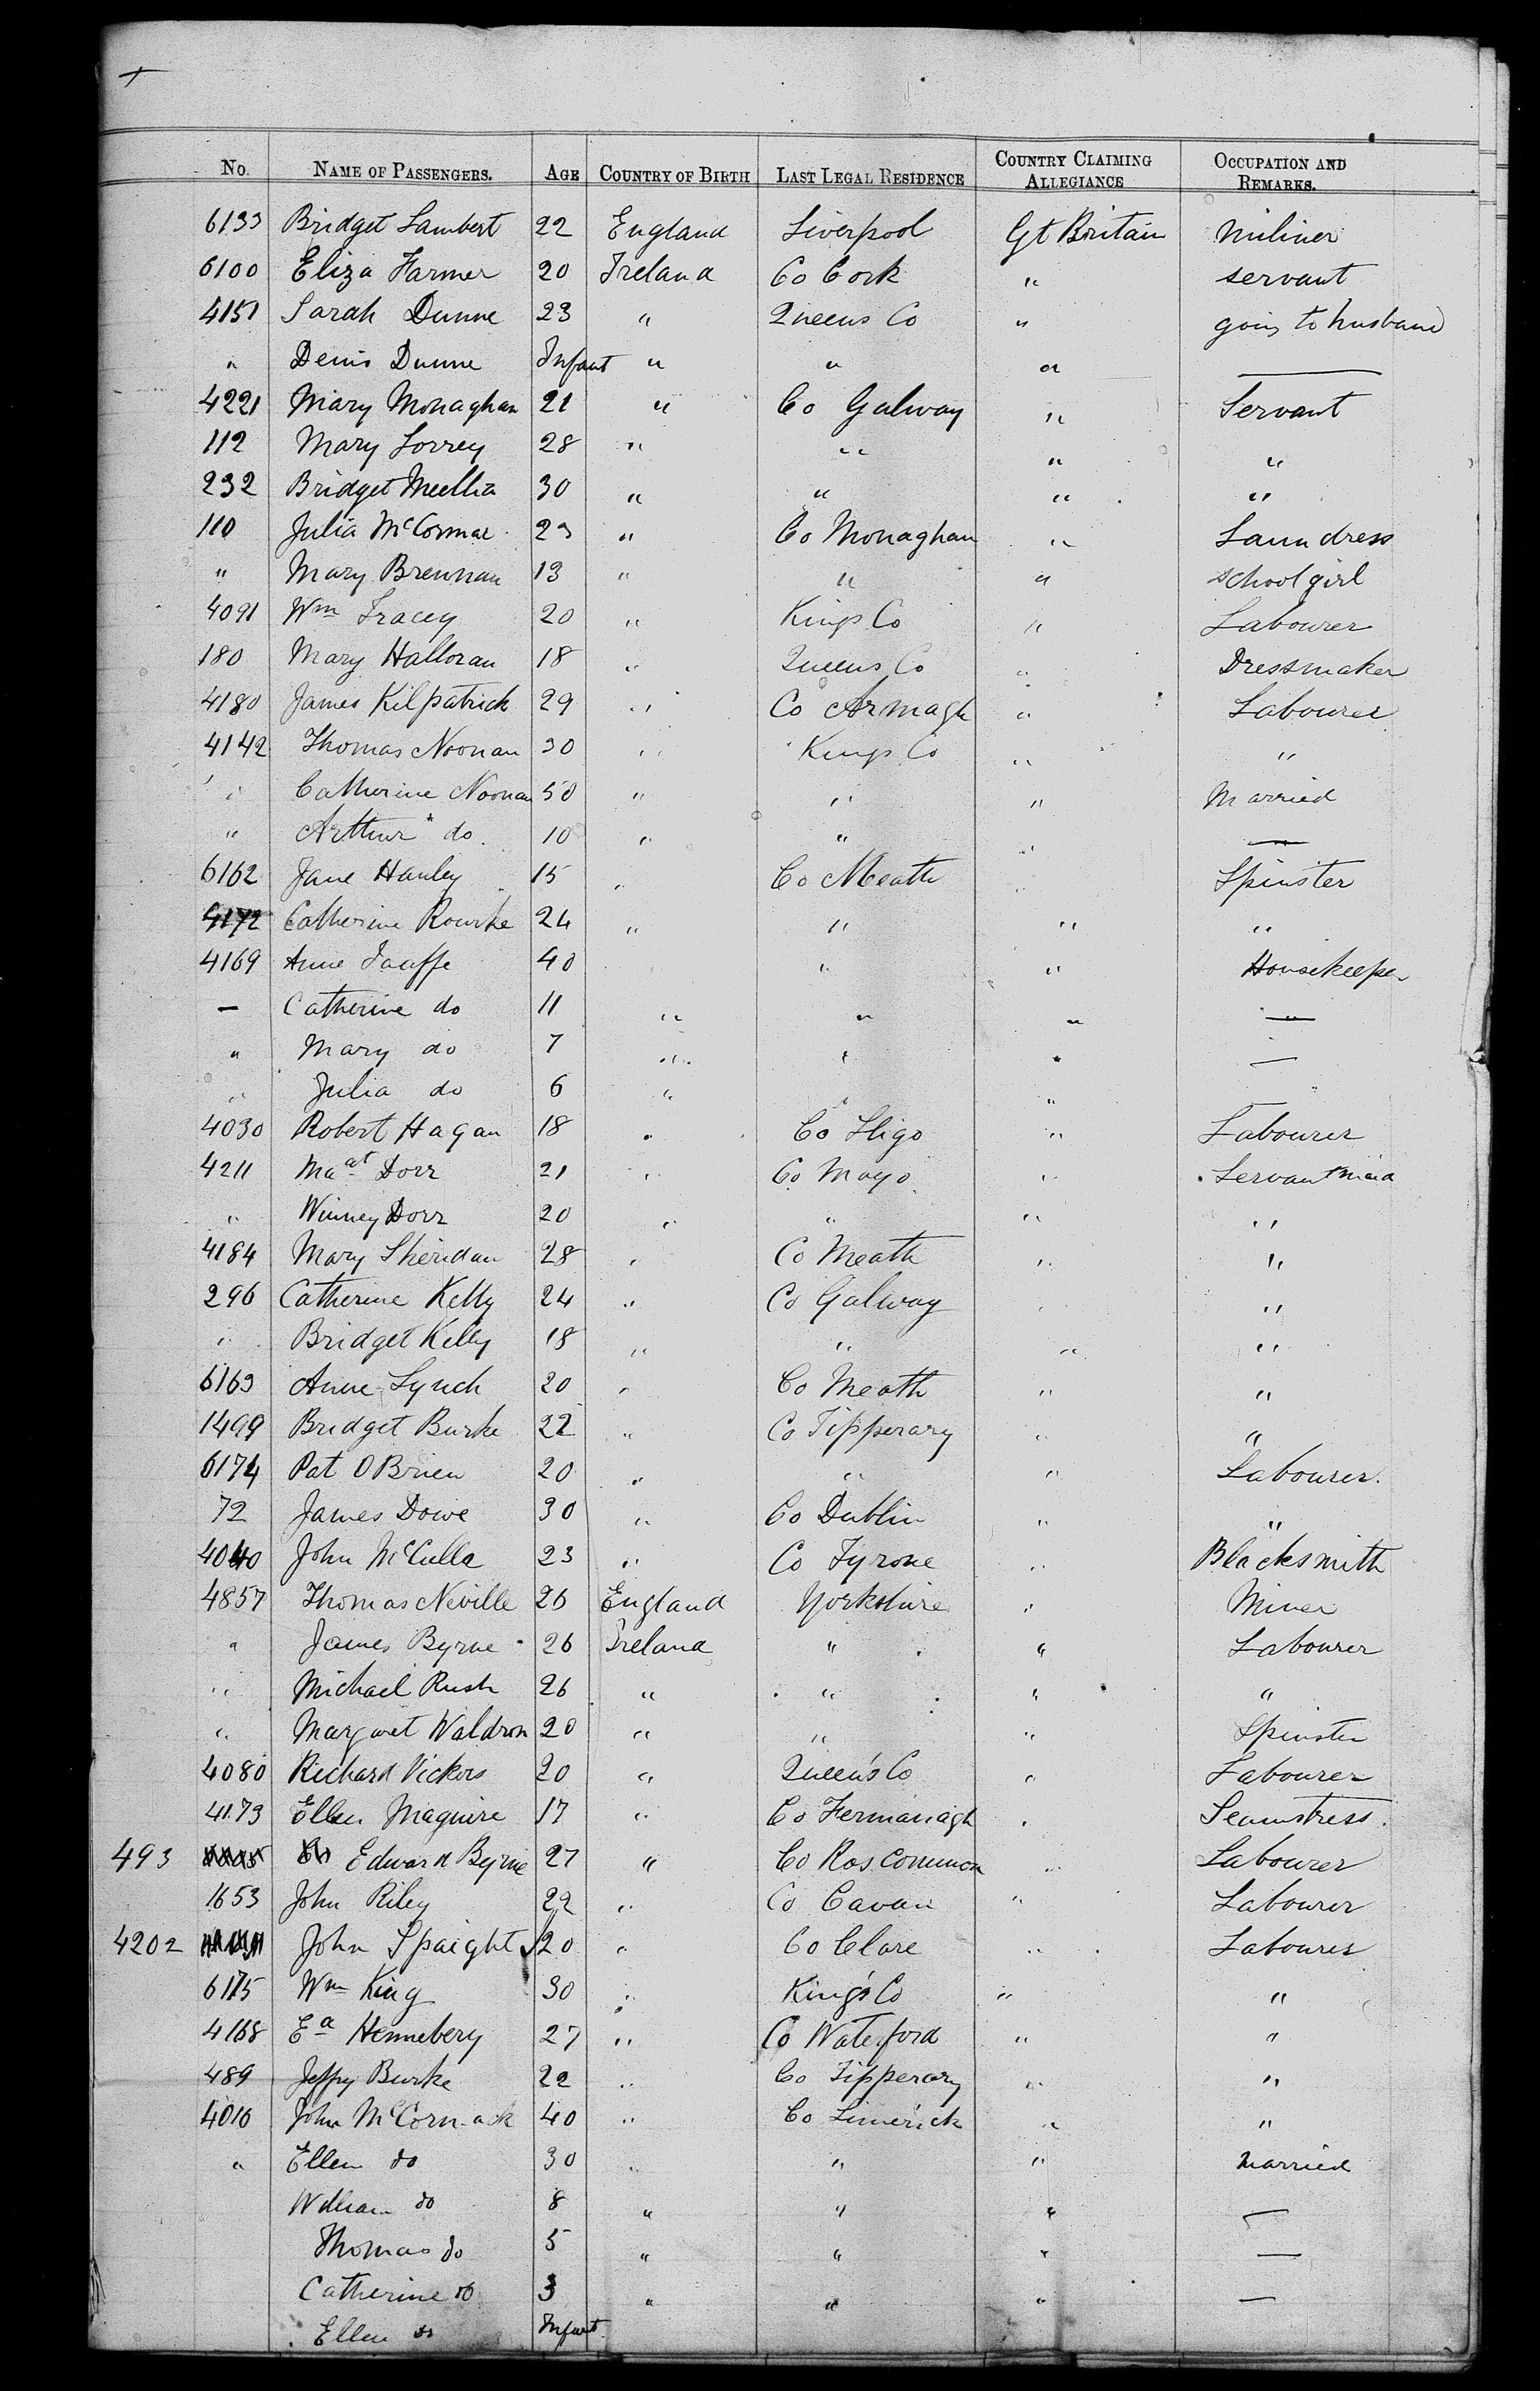 No. NAME OF PASSENGERS. AGE COUNTRY OF BIRTH LAST LEGAL RESIDENCE COUNTRY CLAIMING ALLEGIANCE OCCUPATION AND REMARKS.
6133 Bridget Lambert 22 England Liverpool Gt Britain miliner
6100 Eliza Farmer 20 Ireland Co Cork " servant
4151 Sarah Dunne 23 " Queens Co " going to husband
" Denis Dunne Infant " " " —
4221 Mary Monaghan 21 " Co Galway " Servant
112 Mary 28 " " " "
232 Bridget 30 " " " "
110 Julia McCormac 23 " Co Monaghan " Laundress
" Mary Brennan 13 " " " school girl
4091 Wm Tracey 20 " Kings Co " Labourer
180 Mary Halloran 18 " Queens Co " Dressmaker
4180 James Kilpatrick 29 " Co Armagh " Labourer
4142 Thomas Noonan 30 " Kings Co " "
" Catherine Noonan 50 " " " Married
" Arthur do. 10 " " " —
6162 Jane Hanley 15 " Co Meath " Spinster
4172 Catherine Rourke 24 " " " "
4169 Anne Taaffe 40 " " Housekeeper
— Catherine do 11 " " " —
" Mary do 7 " " " —
" Julia do 6 " " " "
4030 Robert Hagan 18 " Co Sligo " Labourer
4211 Magt Dorr 21 " Co Mayo " Servant maid
" Winney Dorr 20 " " " "
4184 Mary Sheridan 28 " Co Meath " "
296 Catherine Kelly 24 " Co Galway " "
" Bridget Kelly 18 " " " "
6163 Anne Lynch 20 " Co Meath " "
1499 Bridget Burke 22 " Co Tipperary " "
6174 Pat O Brien 20 " " " Labourer.
72 James Dowe 30 " Co Dublin " "
4040 John McCulla 23 " Co Tyrone " Blacksmith
4857 Thomas Neville 26 England Yorkshire " Miner
" James Byrne 26 Ireland " " Labourer
" Michael Rush 26 " " " "
" Margaret Waldron 20 " " " Spinster
4080 Richard Vickers 20 " Queen's Co " Labourer
4173 Ellen Maguire 17 " Co Fermanagh " Seamstress.
493 Edward Byrne 27 " Co Roscommon " Labourer
1653 John Riley 22 " Co Cavan " Labourer
4202 John Spaight 20 " Co Clare " Labourer
6175 Wm King 30 " King's Co " "
4168 Ea Hennebery 27 " Co Waterford " "
489 Jeffry Burke 22 " Co Tipperary " "
4016 John McCormack 40 " Co Limerick " "
" Ellen do 30 " " " Married
William do 8 " " " —
Thomas do 5 " " " —
Catherine do 3 " " " —
Ellen do Infant